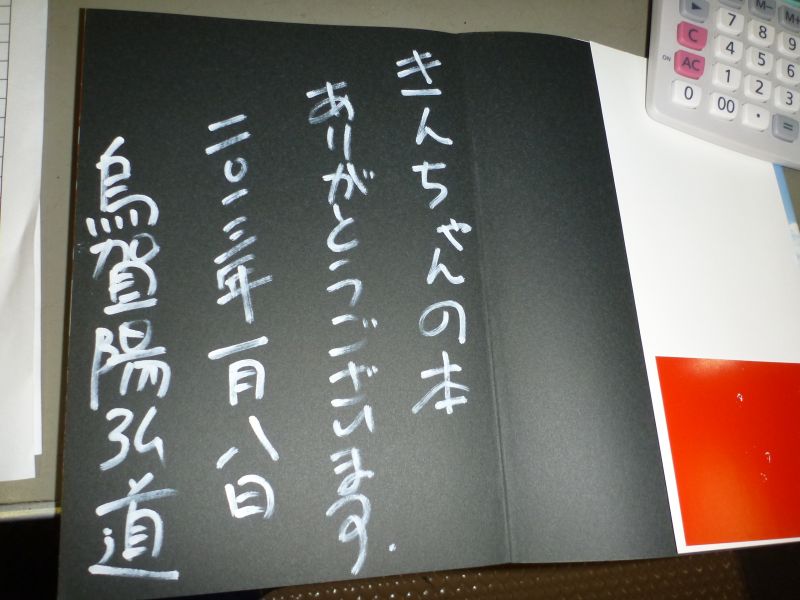 きんちゃんの本
ありがとうございます.
二〇一三年一月八日
烏賀陽弘道
M- M+
7 8 9
C 4 5 6
ON AC 1 2 3
0 00 · =